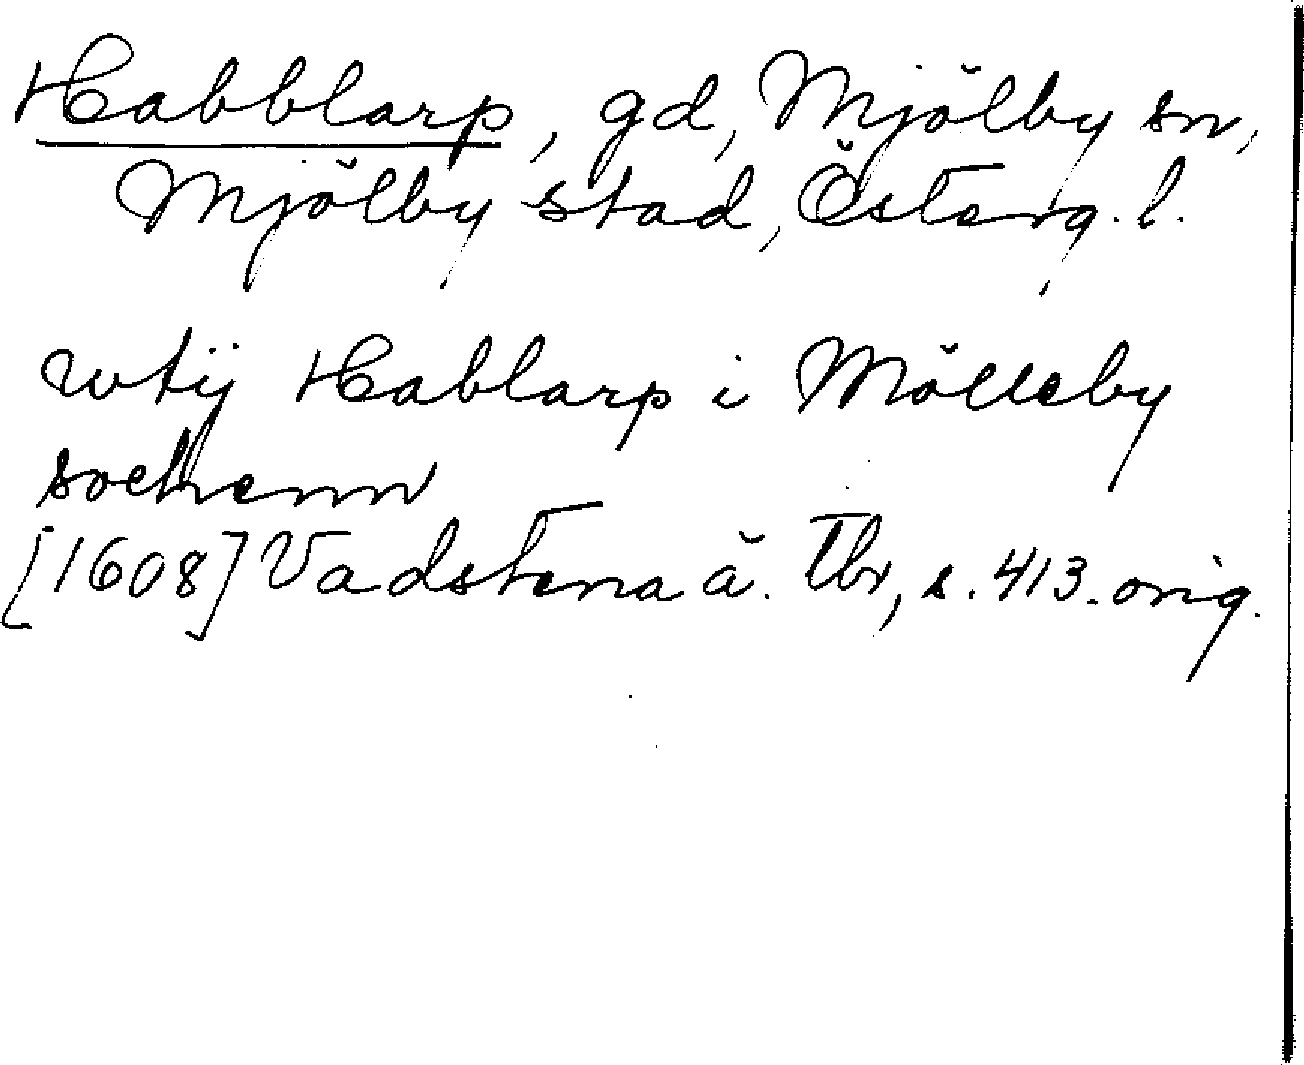 Habblarp, gd, Mjölby sn,
Mjölby stad, Österg. l.
wtij Hablarp i Mölleby
sochenn
[1608] Vadstena ä. Tbr, s. 413. orig.